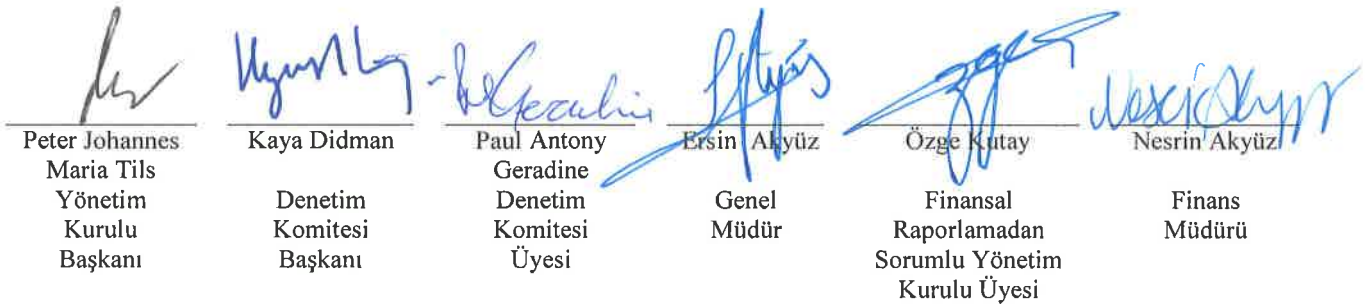 Peter Johannes
Maria Tils
Yönetim
Kurulu
Başkanı
Kaya Didman
Denetim
Komitesi
Başkanı
Paul Antony
Geradine
Denetim
Komitesi
Üyesi
Ersin Akyüz
Genel
Müdür
Özge Kutay
Finansal
Raporlamadan
Sorumlu Yönetim
Kurulu Üyesi
Nesrin Akyüz
Finans
Müdürü